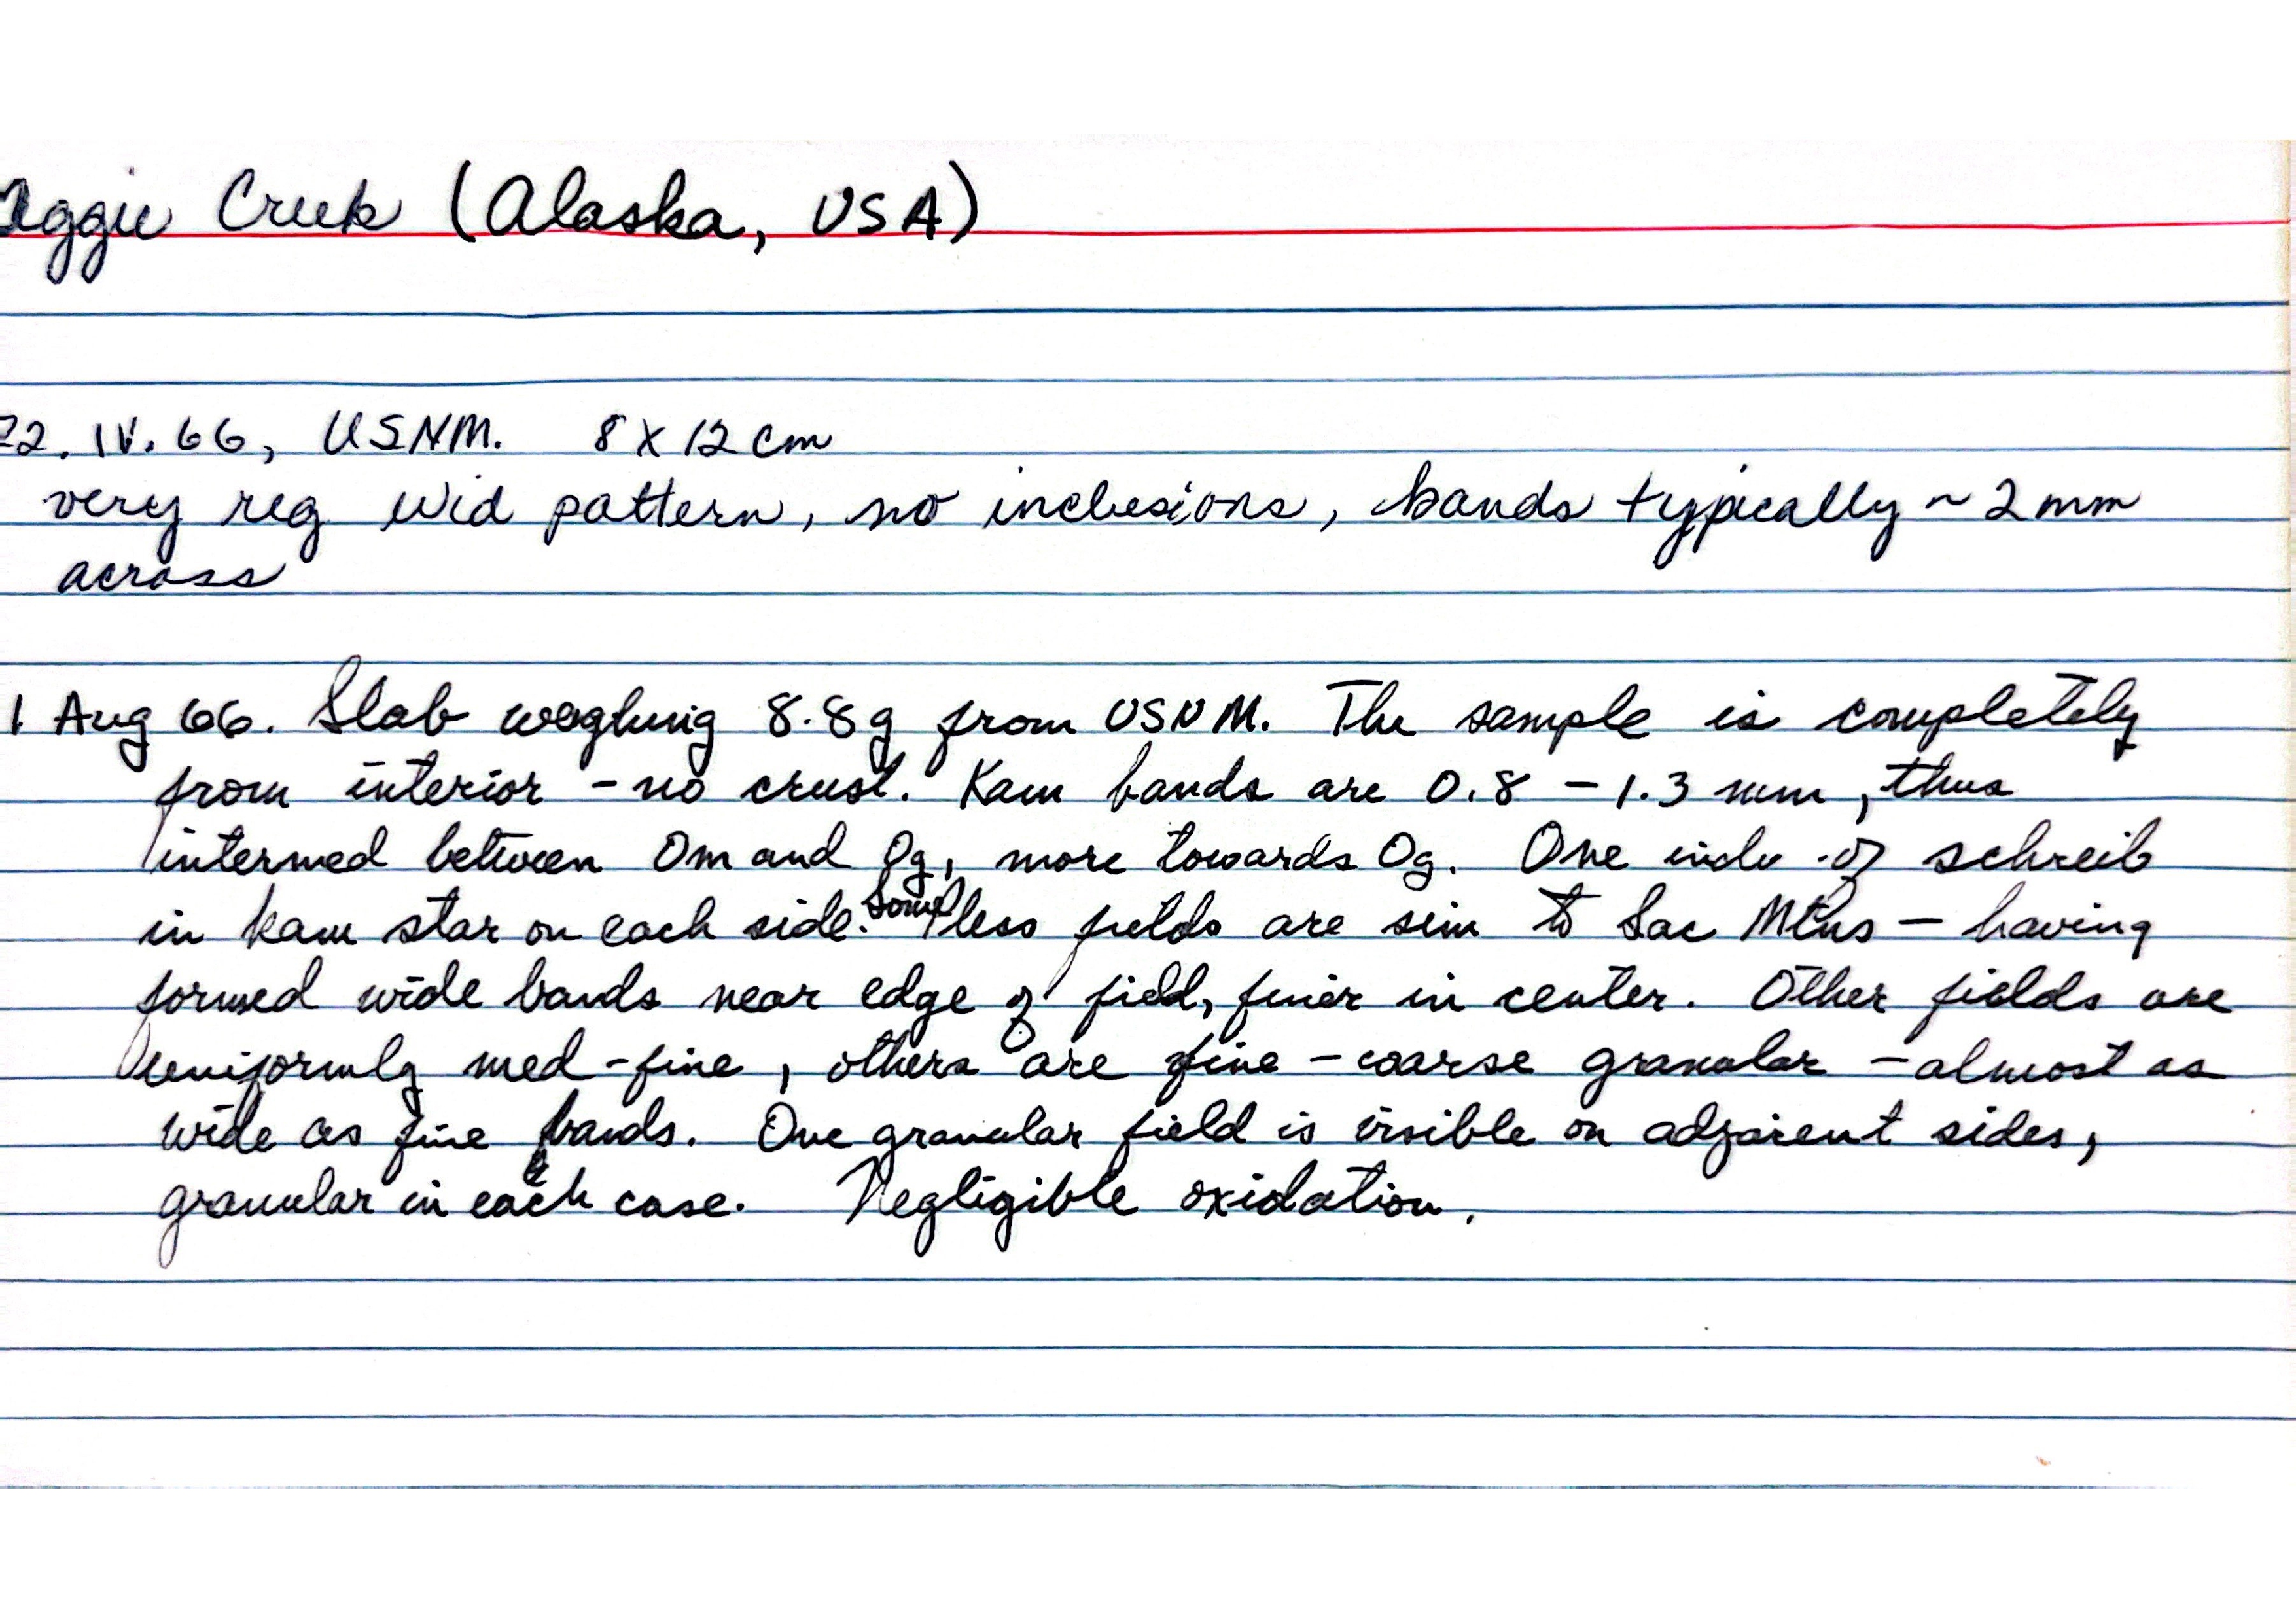 Aggie Creek (Alaska, USA)
22. IV. 66, USNM. 8 X 12 cm
very reg Wid pattern, no inclusions, bands typically ~ 2 mm
across
1 Aug 66. Slab weghing 8.8g from USNM. The sample is completely
from interior - no crust. Kam bands are 0.8 - 1.3 mm, thus
intermed between Om and Og, more towards Og. One inclu of schreib
in kam star on each side. Some pless fields are sim to Sac Mtns - having
formed wide bands near edge of field, finer in center. Other fields are
uniformly med-fine, others are fine - coarse granular - almost as
wide as fine bands. One granular field is visible on adjacent sides,
granular in each case. Negligible oxidation.